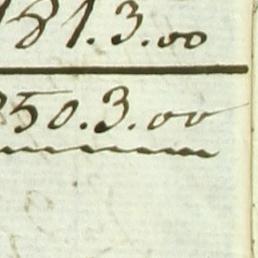 181.3.00
850.3.00